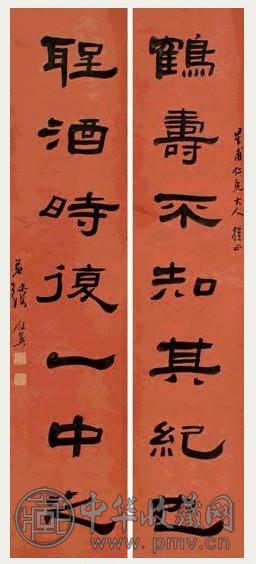 星甫仁兄大人 正
鶴壽不知其紀也
聖酒時復一中之
中华收藏网
www.pmv.cn